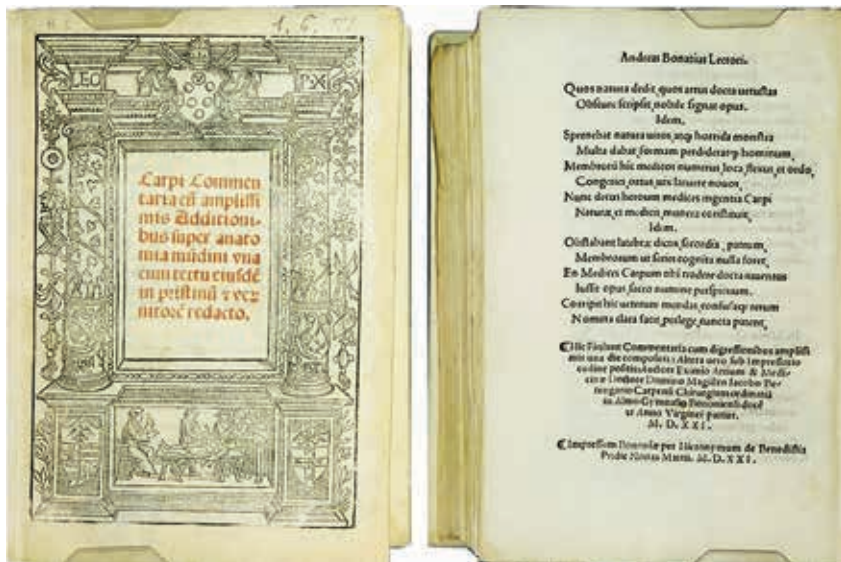 LEO
P·X
Carpi Commen
taria cū ampliſſi
mis Additioni-
bus ſuper anato
mia mūdini vna
cum textu eiuſdē
in priſtinū ⁊ veꝝ
nitorē redacto.
Andreas Bonatius Lectori.
Quos natura dedit, quos artus docta uetuſtas
Obſcure ſcripſit, nobile ſignat opus.
Idem.
Spernebat natura uiros, atq; horrida monſtra
Multa dabat, formam perdideratq; hominum,
Membrorū hic medicos numerus, loca, flexus, et ordo,
nouos,
Nunc decus heroum medices ingentia Carpi
Naturæ, et medicis munera conſtituit,
Idem.
Obſtabant latebræ dictis, ſocordia patrum,
Membrorum ut ſeries cognita nulla foret,
En Medices Carpum tibi tradere docta
Iuſſit opus ſacro numine perſpicuum.
Corripit hic ueterum mendas, confuſaq; rerum
Nomina clara facit, perlege, cuncta patent,
Commentaria cum digreſſionibus ampliſſi
mis una die
Artium & Medi-
Doctore Domino Magiſtro Iacobo Be-
rengario Carpenſi Chirurgiam ordinariā
in Almo Gymnaſio Bononienſi docē
te Anno Virginei partus.
M. D. XXI.
¶ Impreſſum Bononiæ per Hieronymum de Benedictis
Pridie Nonas Martii. M. D. XXI.